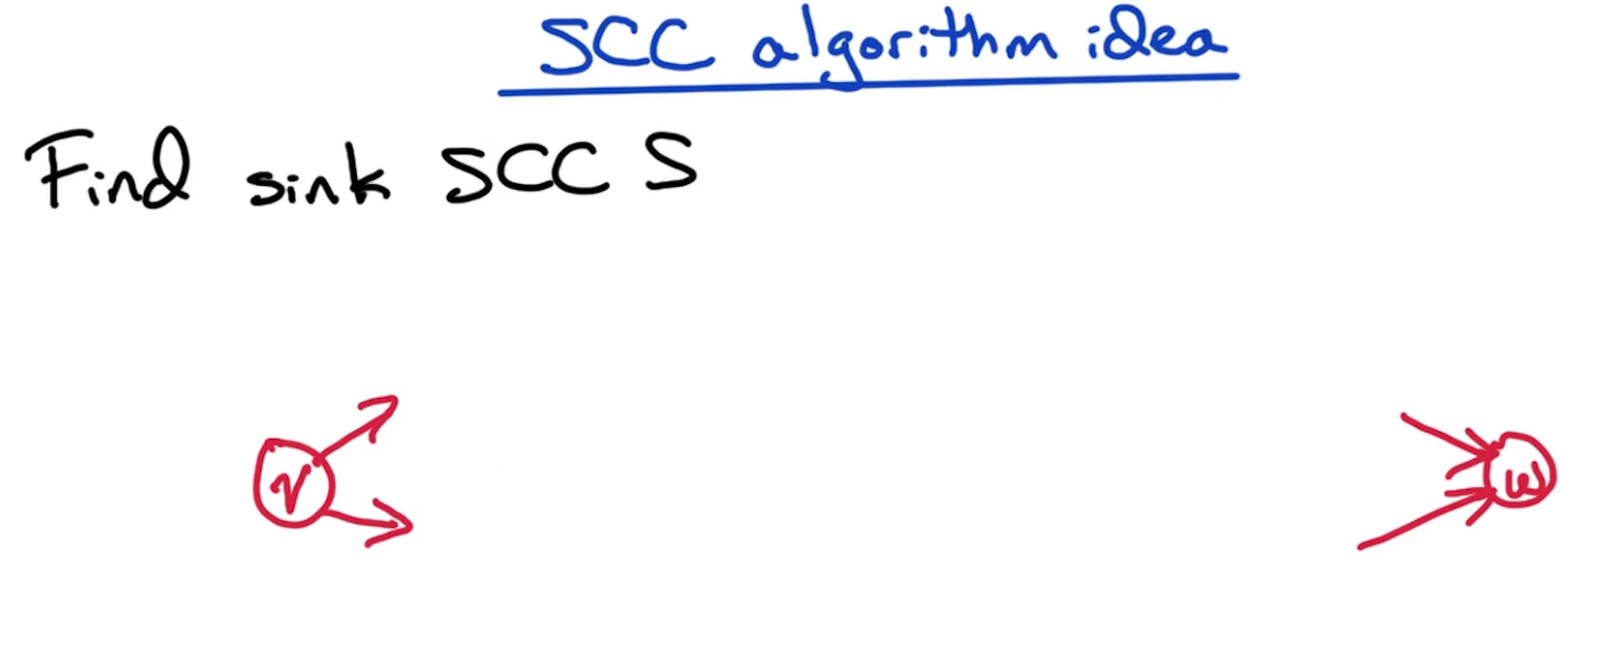 SCC algorithm idea
Find sink SCC S
v w